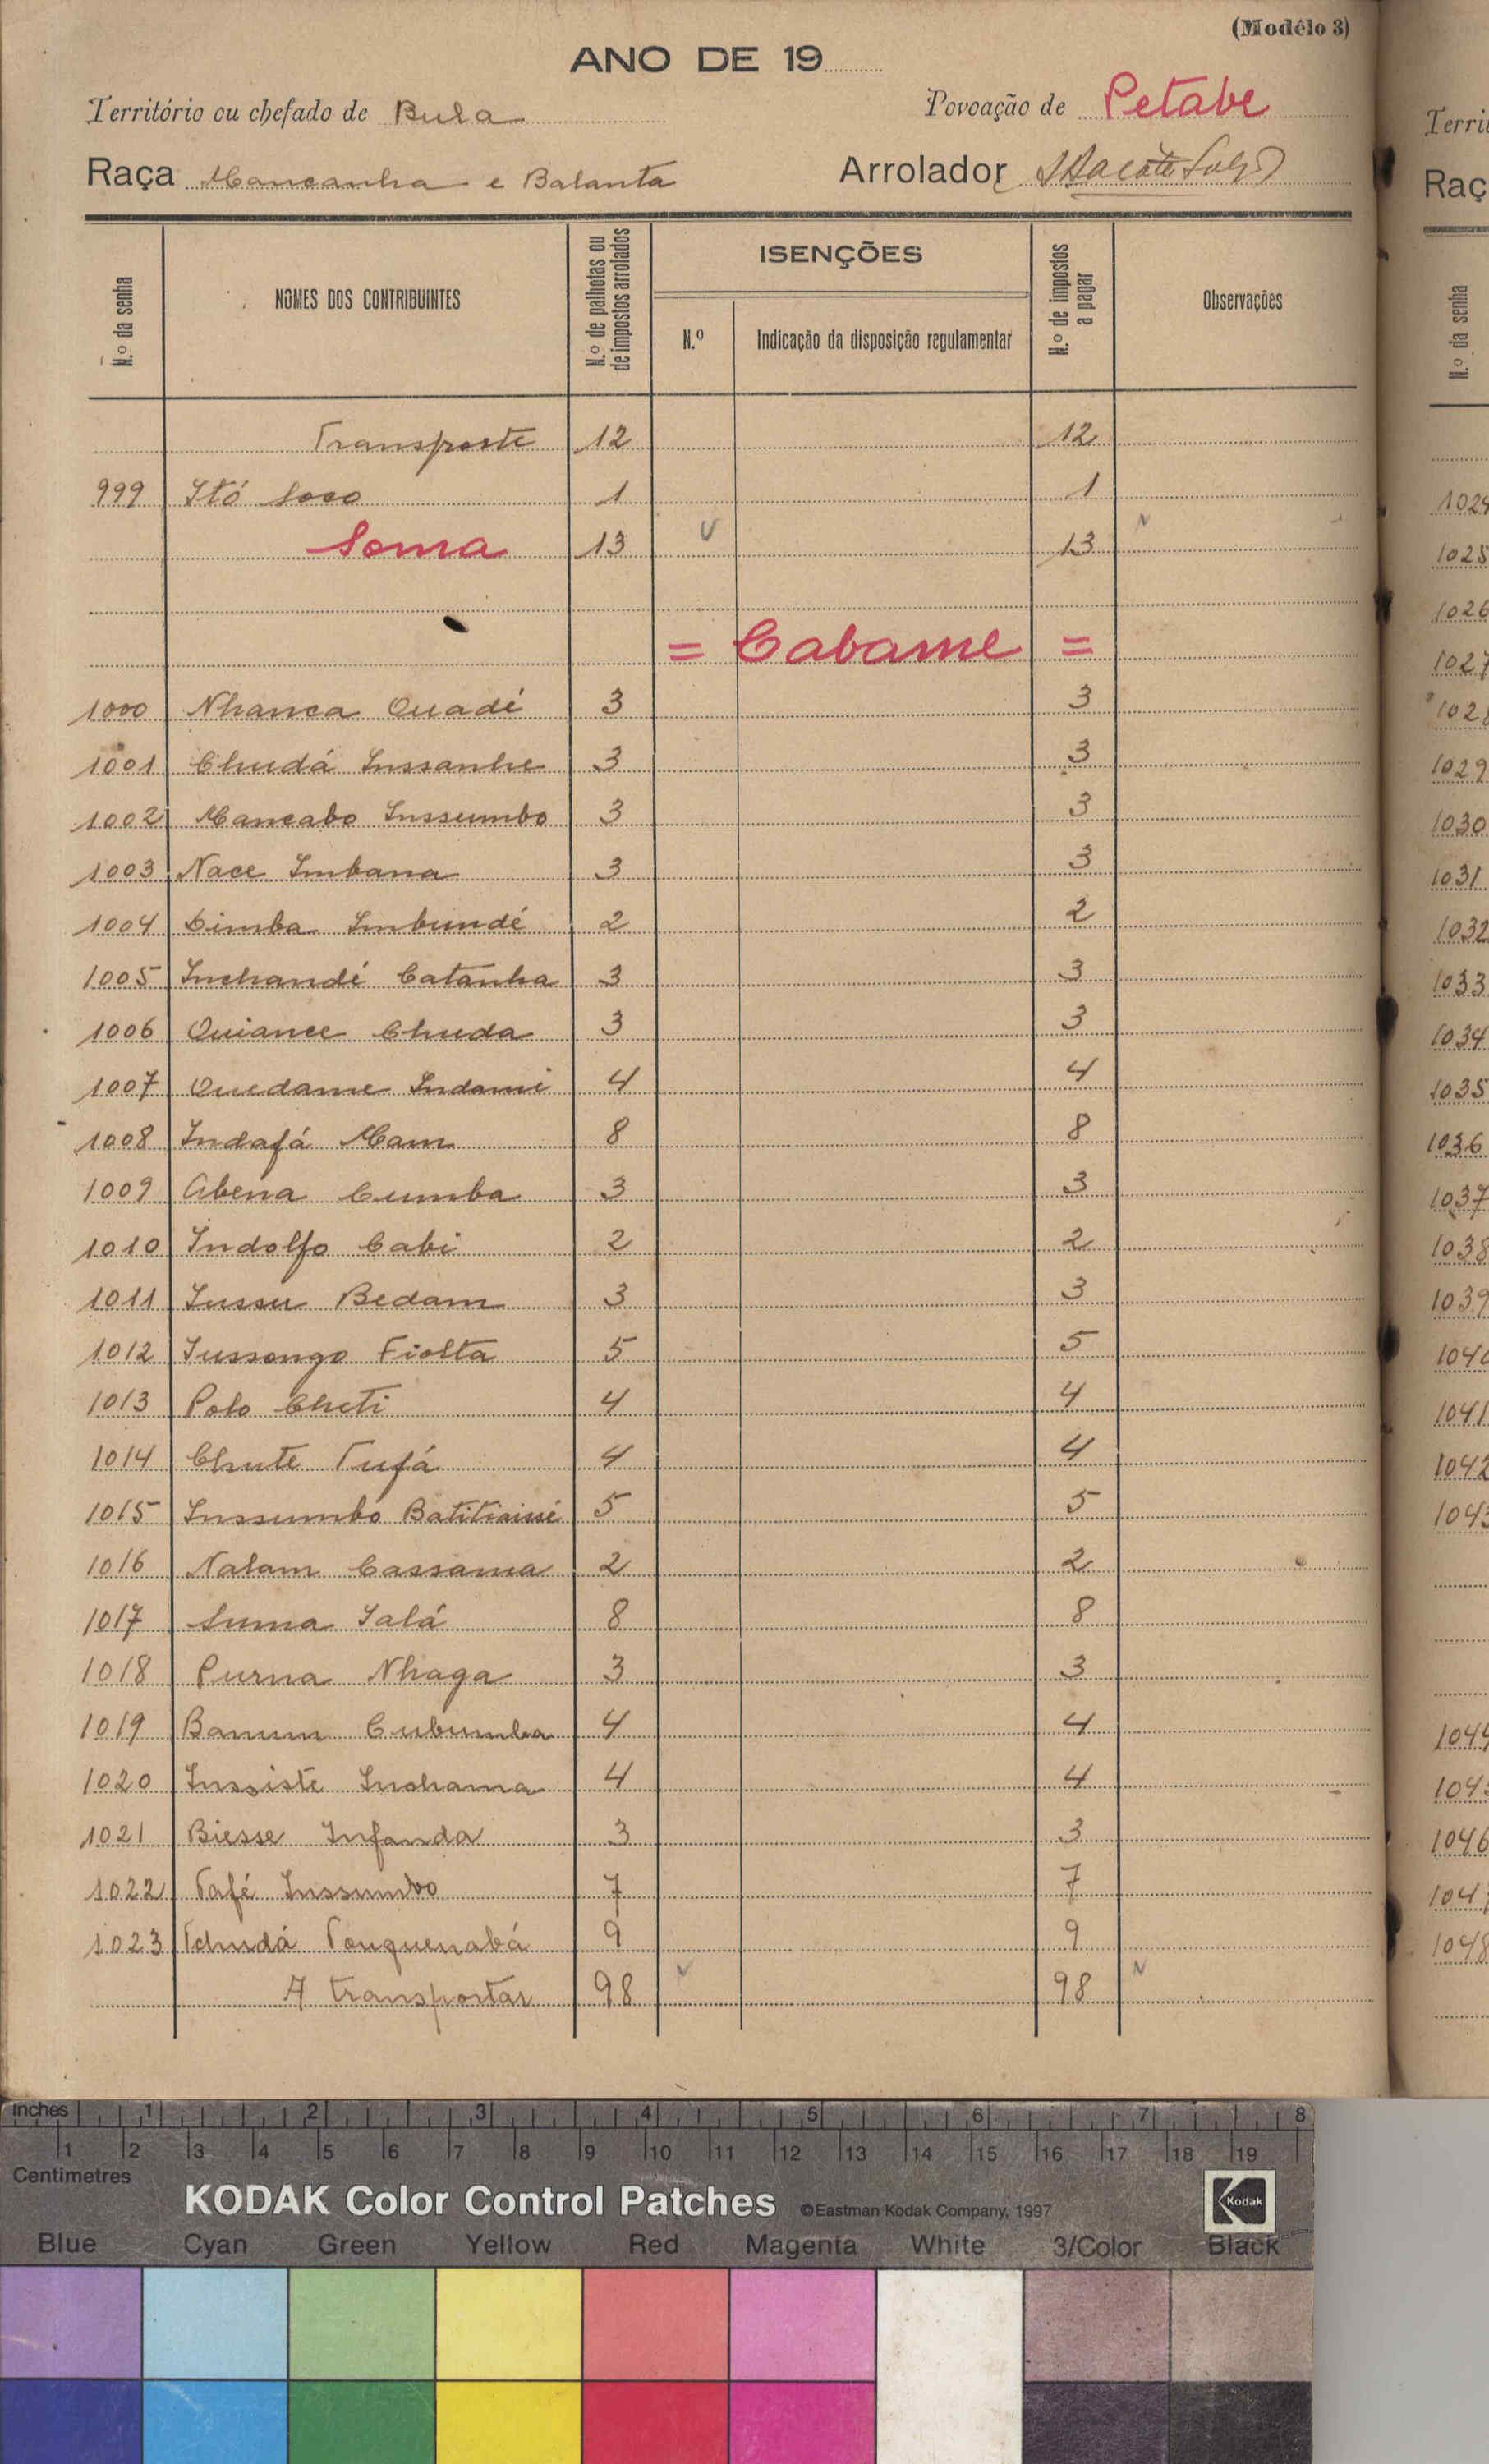 (Modêlo 3)
ANO DE 19
Território ou chefado de Bula
Povoação de Petabe
Raça Mancanha e Balanta
Arrolador
N.º da senha
NOMES DOS CONTRIBUINTES
N.º de palhotas ou de impostos arrolados
ISENÇÕES
N.º
Indicação da disposição regulamentar
N.º de impostos a pagar
Observações
Transporte 12 12
999 Itó Soco 1 1
Soma 13 13
= Cabame =
1000 Nhanca Quadé 3 3
1001 Chudá Inssanhe 3 3
1002 Mancabo Inssumbo 3 3
1003 Nace Imbana 3 3
1004 Dimba Imbundé 2 2
1005 Inchandé Catanha 3 3
1006 Quiance Chuda 3 3
1007 Quedame Indami 4 4
1008 Indafá Mam 8 8
1009 Abena Cumba 3 3
1010 Indolfo Cabi 2 2
1011 Inssu Bedam 3 3
1012 Inssongo Fiolta 5 5
1013 Polo Cheti 4 4
1014 Chute Tufá 4 4
1015 Inssumbó 5 5
1016 Nalam Cassama 2 2
1017 Suma Salá 8 8
1018 Purna Nhaga 3 3
1019 Banum Cubumba 4 4
1020 Inssiste Inchama 4 4
1021 Biesse Infanda 3 3
1022 Tafé Inssumbo 7 7
1023 Tchudá Touquenabá 9 9
A transportar 98 98
Raç
N.º da senha
1025
1026
1027
1029
1030
1031
1032
1033
1034
1035
1036
1037
1038
1039
1041
1042
1046
1048
inches 1 2 3 4 5 6 7 8
1 2 3 4 5 6 7 8 9 10 11 12 13 14 15 16 17 18 19
Centimetres
KODAK Color Control Patches ©Eastman Kodak Company, 1997
Kodak
Blue Cyan Green Yellow Red Magenta White 3/Color Black